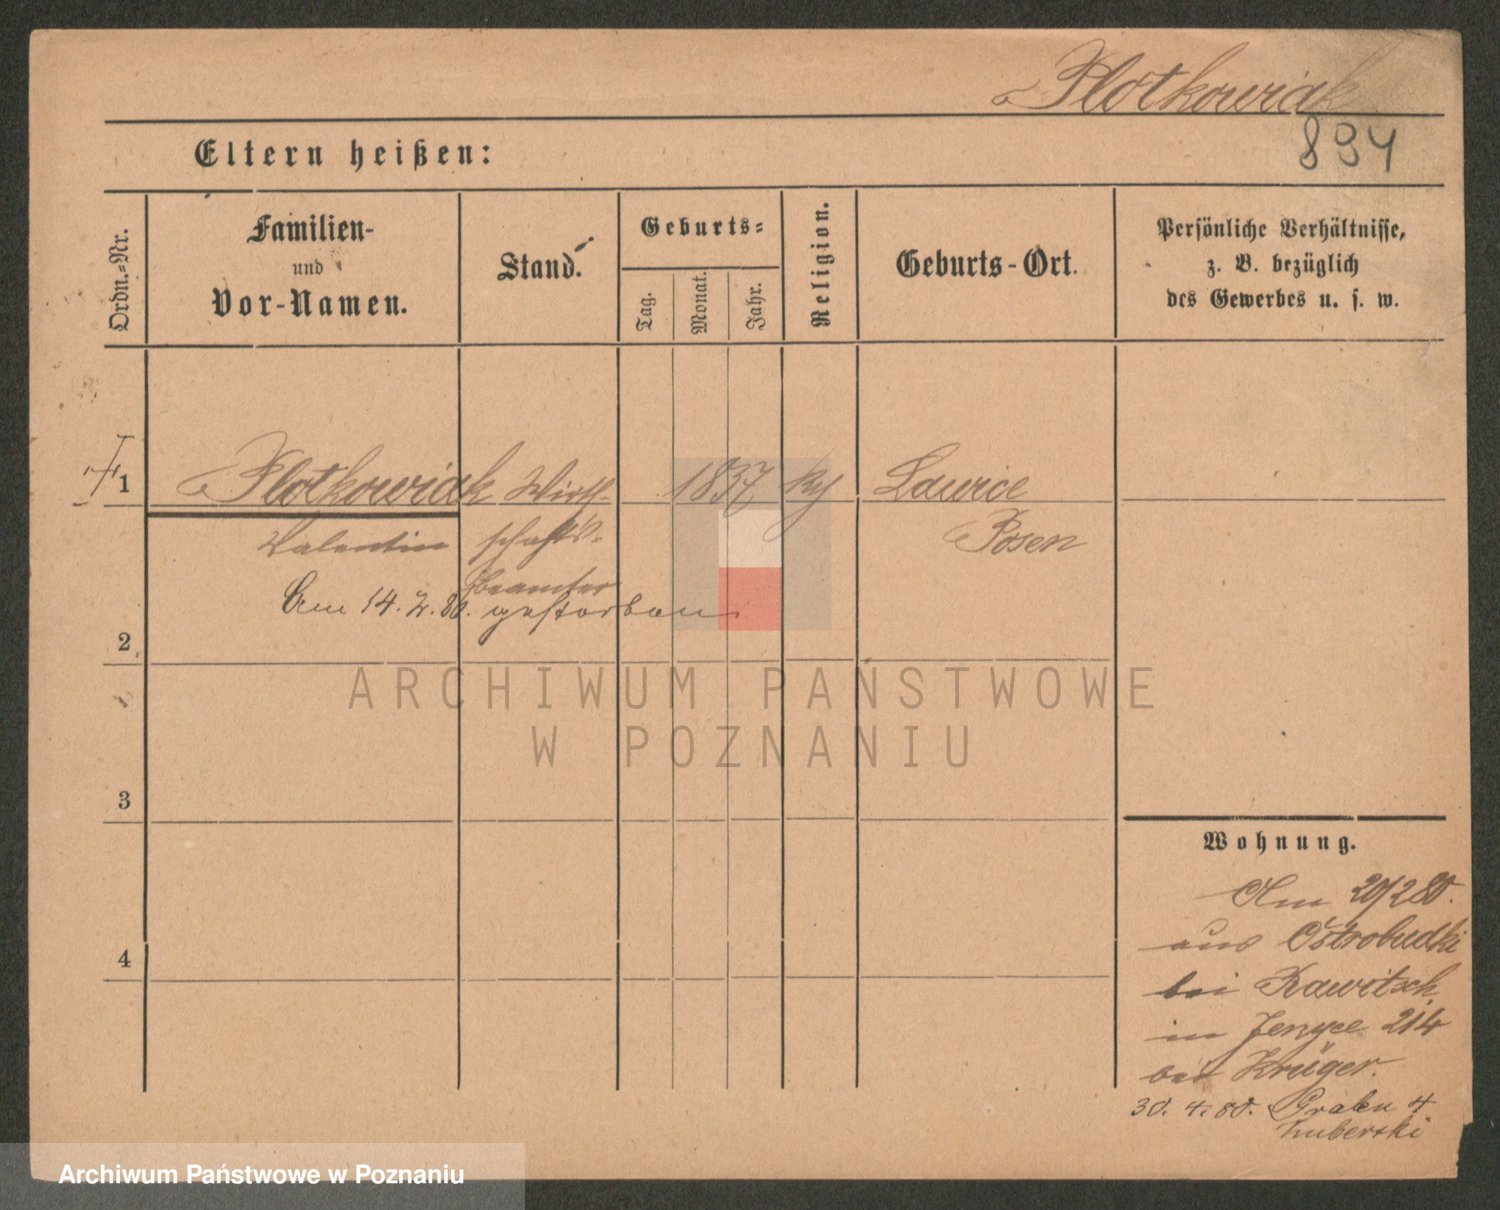 Plotkowiak
894
Eltern heißen:
Ordn.-Nr.
Familien-
und
Vor-Namen.
Stand.
Geburts-
Tag.
Monat.
Jahr.
Religion.
Geburts-Ort.
Persönliche Verhältnisse,
z. B. bezüglich
des Gewerbes u. s. w.
1 Plotkowiak Wirth- 1837 Lawice
Valentin schafts- Posen
beamter
Am 14. 2. 80. gestorben
2
3
4
ARCHIWUM PAŃSTWOWE
W POZNANIU
Wohnung.
Am 20/2 80.
aus Ostrobudki
bei Rawitsch
in 214
bei Krüger.
30. 4. 80. Graben 4
Luberski
Archiwum Państwowe w Poznaniu